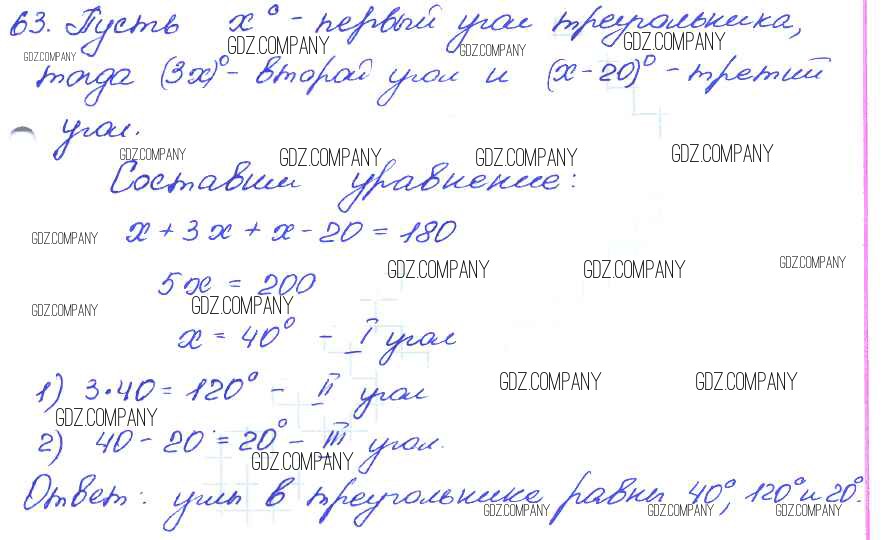 63. Пусть x° - первый угол треугольника,
тогда (3x)° - второй угол и (x - 20)° - третий
угол.
Составим уравнение:
x + 3x + x - 20 = 180
5x = 200
x = 40° - I угол
1) 3·40 = 120° - II угол
2) 40 - 20 = 20° - III угол.
Ответ: углы в треугольнике равны 40°, 120° и 20°.
GDZ.COMPANY GDZ.COMPANY GDZ.COMPANY GDZ.COMPANY
GDZ.COMPANY GDZ.COMPANY GDZ.COMPANY GDZ.COMPANY
GDZ.COMPANY GDZ.COMPANY GDZ.COMPANY GDZ.COMPANY
GDZ.COMPANY GDZ.COMPANY
GDZ.COMPANY GDZ.COMPANY
GDZ.COMPANY GDZ.COMPANY
GDZ.COMPANY GDZ.COMPANY GDZ.COMPANY